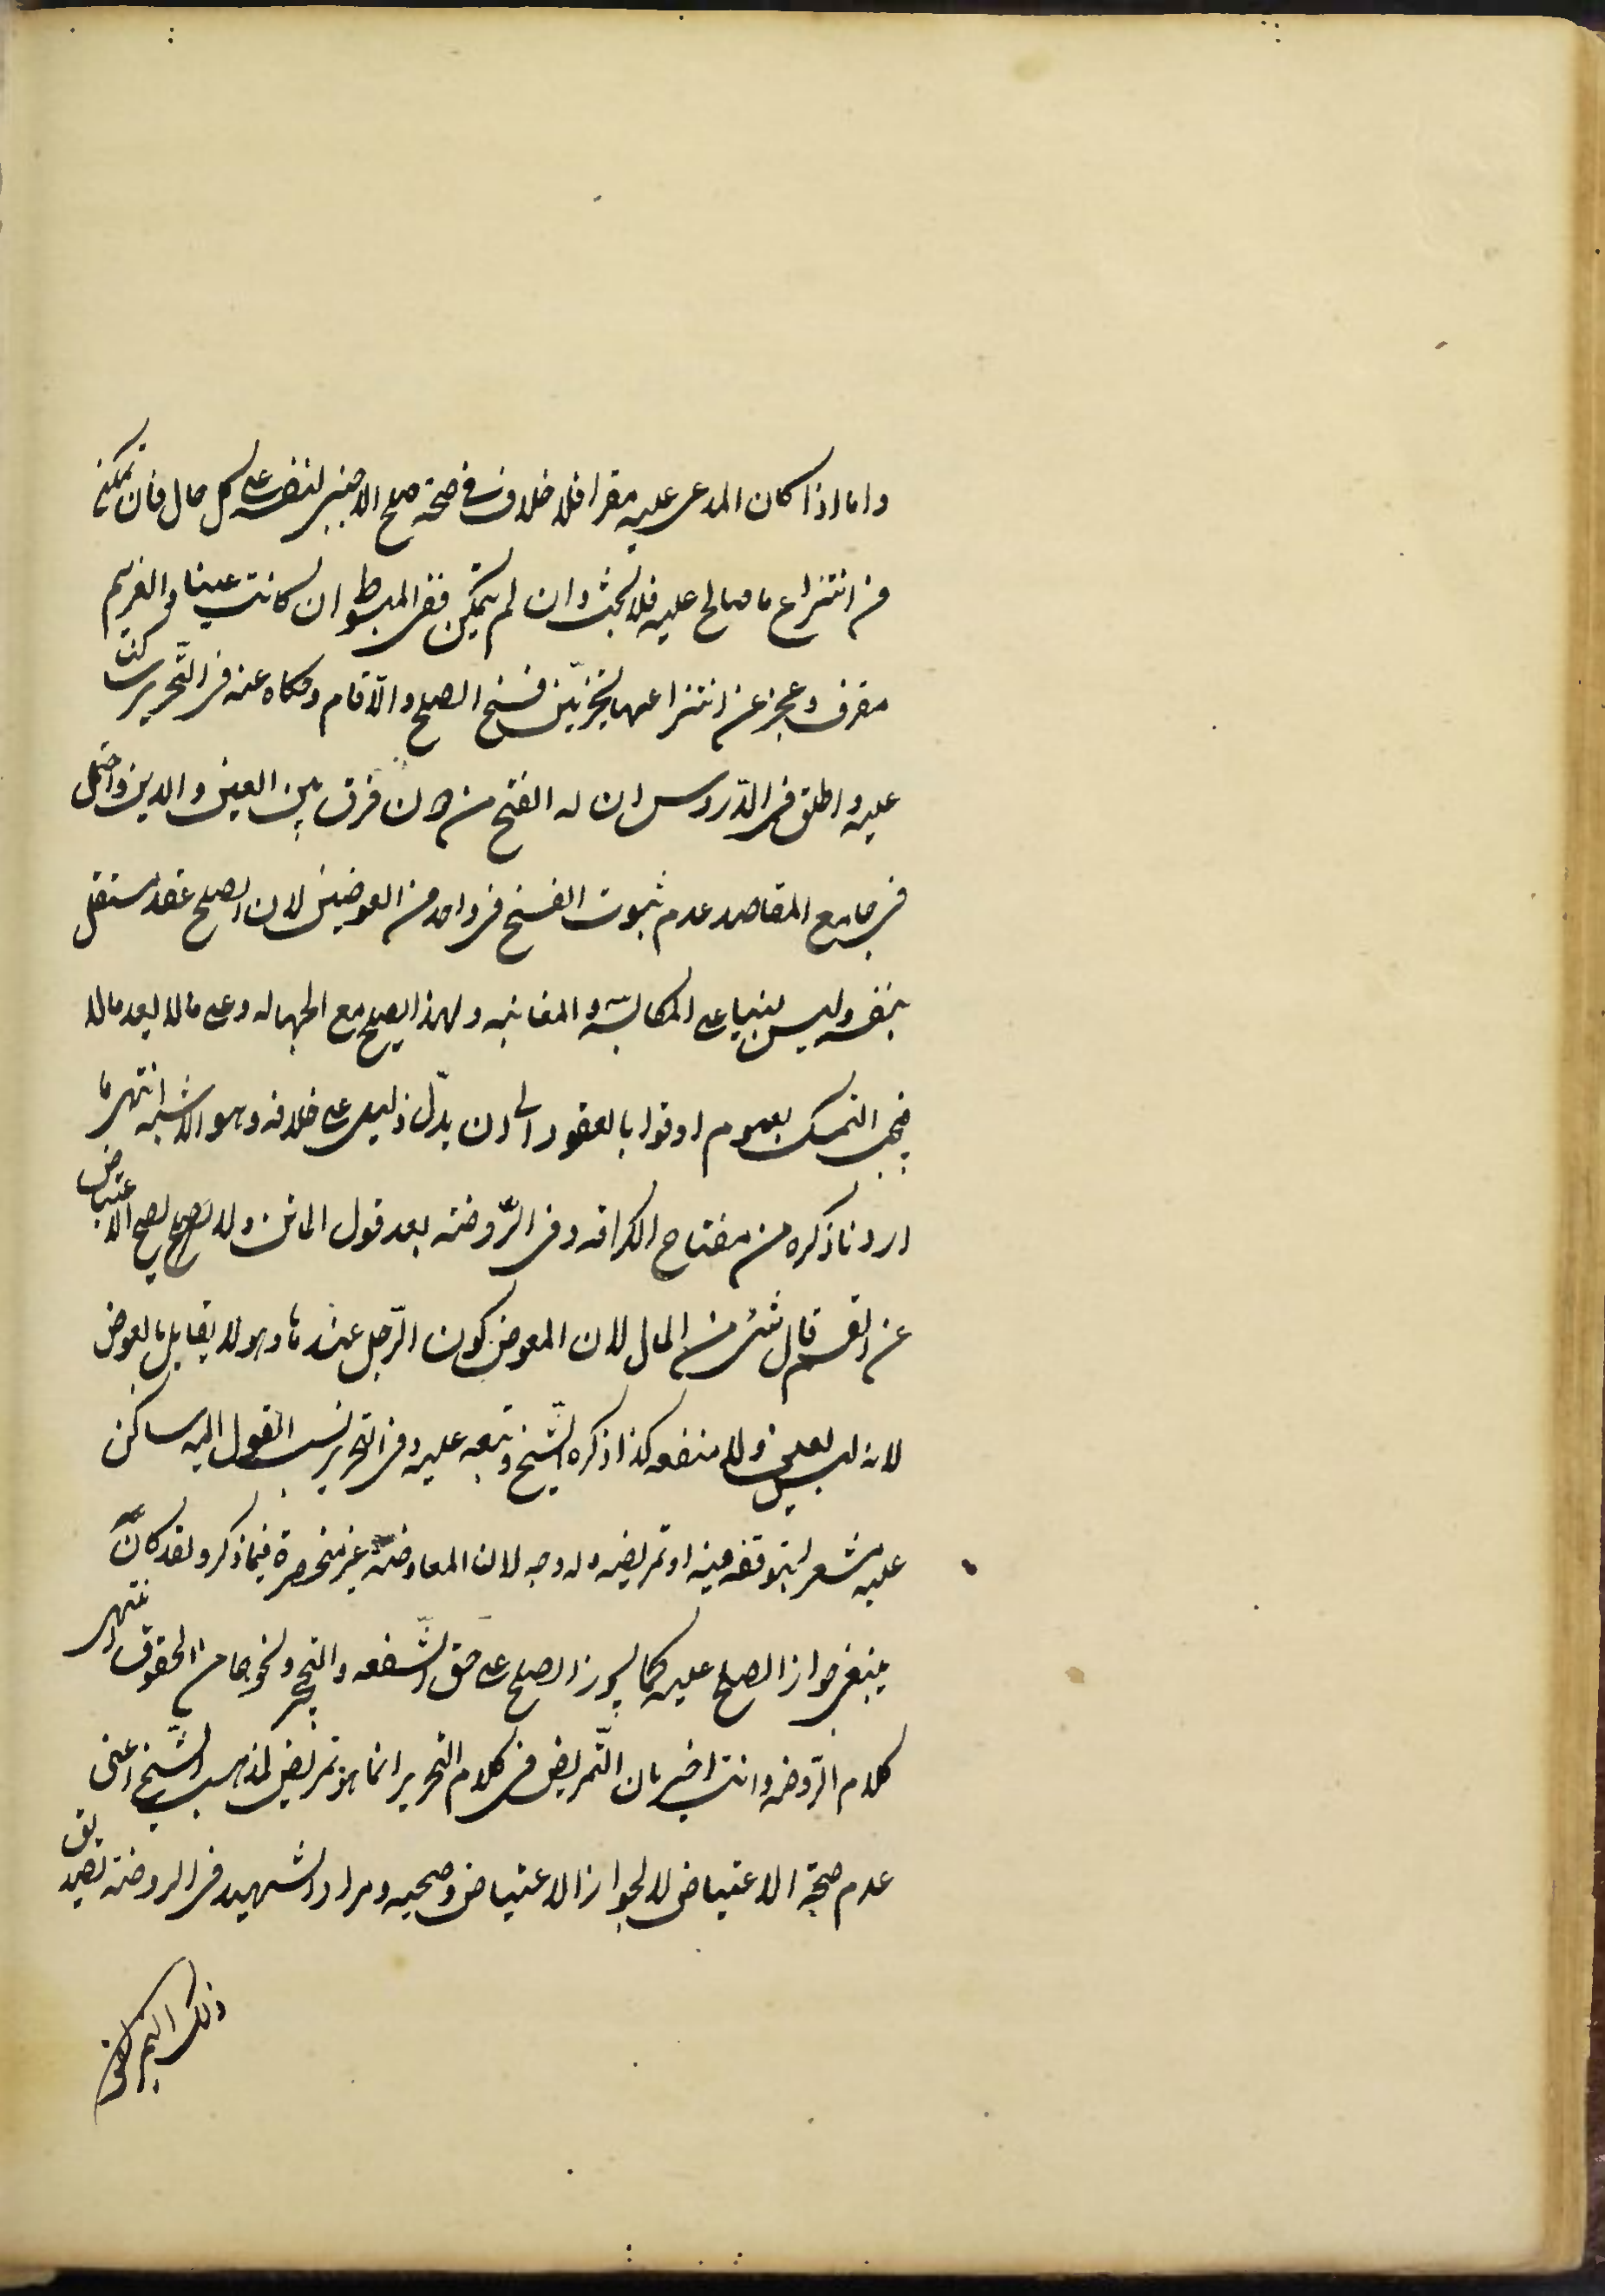 واما اذا كان المدعى عليه مقرا فلا خلاف في صحة صلح الاجنبى لنفسه على كل حال فان تمكن
من انتزاع ما صالح عليه فلا بحث وان لم يتمكن ففى المبسوط ان كانت عينا والغريم
معترف وعجز عن انتزاعها تخير بين فسخ الصلح والاقام وحكاه عنه فى التحرير ساكتا
عليه واطلق فى الدروس ان له الفسخ من دون فرق بين العين والدين واحتمل
فى جامع المقاصد عدم ثبوت الفسخ فى واحد من العوضين لان الصلح عقد مستقل
بنفسه وليس مبنيا على المكايسة والمغابنه ولهذا يصح مع الجهاله وعلى مالا يعد مالا
فيجب التمسك بعموم اوفوا بالعقود الى ان يدل دليل على خلافه وهو الاشبه انتهى ما
اردنا ذكره من مفتاح الكرامه وفى الروضة بعد قول الماتن ولا يصح الاعتياض
عن القسم بشئ من المال لان المعوض كون الرجل عندها وهو لا يقابل بالعوض
لانه ليس بعين ولا منفعه كذا ذكره الشيخ وتبعه عليه وفى التحرير نسب القول اليه ساكنا
عليه مشعر بتوقفه فيه او تمريضه وله وجه لان المعاوضة غير منحصرة فيما ذكر ولقد كان
ينبغى جواز الصلح عليه كما يجوز الصلح على حق الشفعه والتحجير ونحوهما من الحقوق انتهى
كلام الروضه وانت خبير بان التمريض فى كلام التحرير انما هو تمريض لمذهب الشيخ اعنى
عدم صحة الاعتياض لا لجواز الاعتياض وصحته ومراد الشهيد فى الروضة تصديق
ذلك